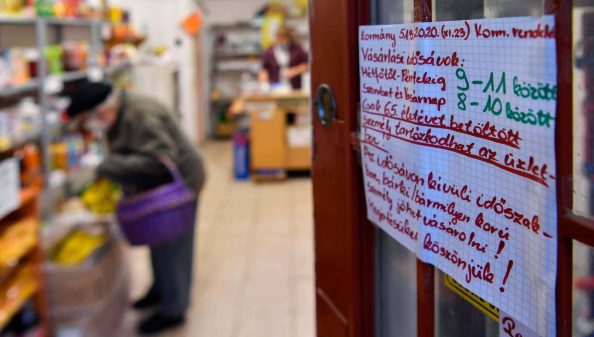 Kormány 519.2020. (XI.25) Korm. rendelet
Vásárlási idősávok:
Hétfőtől-Péntekig 9-11 között
Szombat és vasárnap 8-10 között
Csak 65. életévet betöltött
személy tartózkodhat az üzlet-
ben.
Az idősávon kívüli időszak-
ban, bárki/bármilyen korú
személy jöhet vásárolni!
Megértésüket köszönjük!